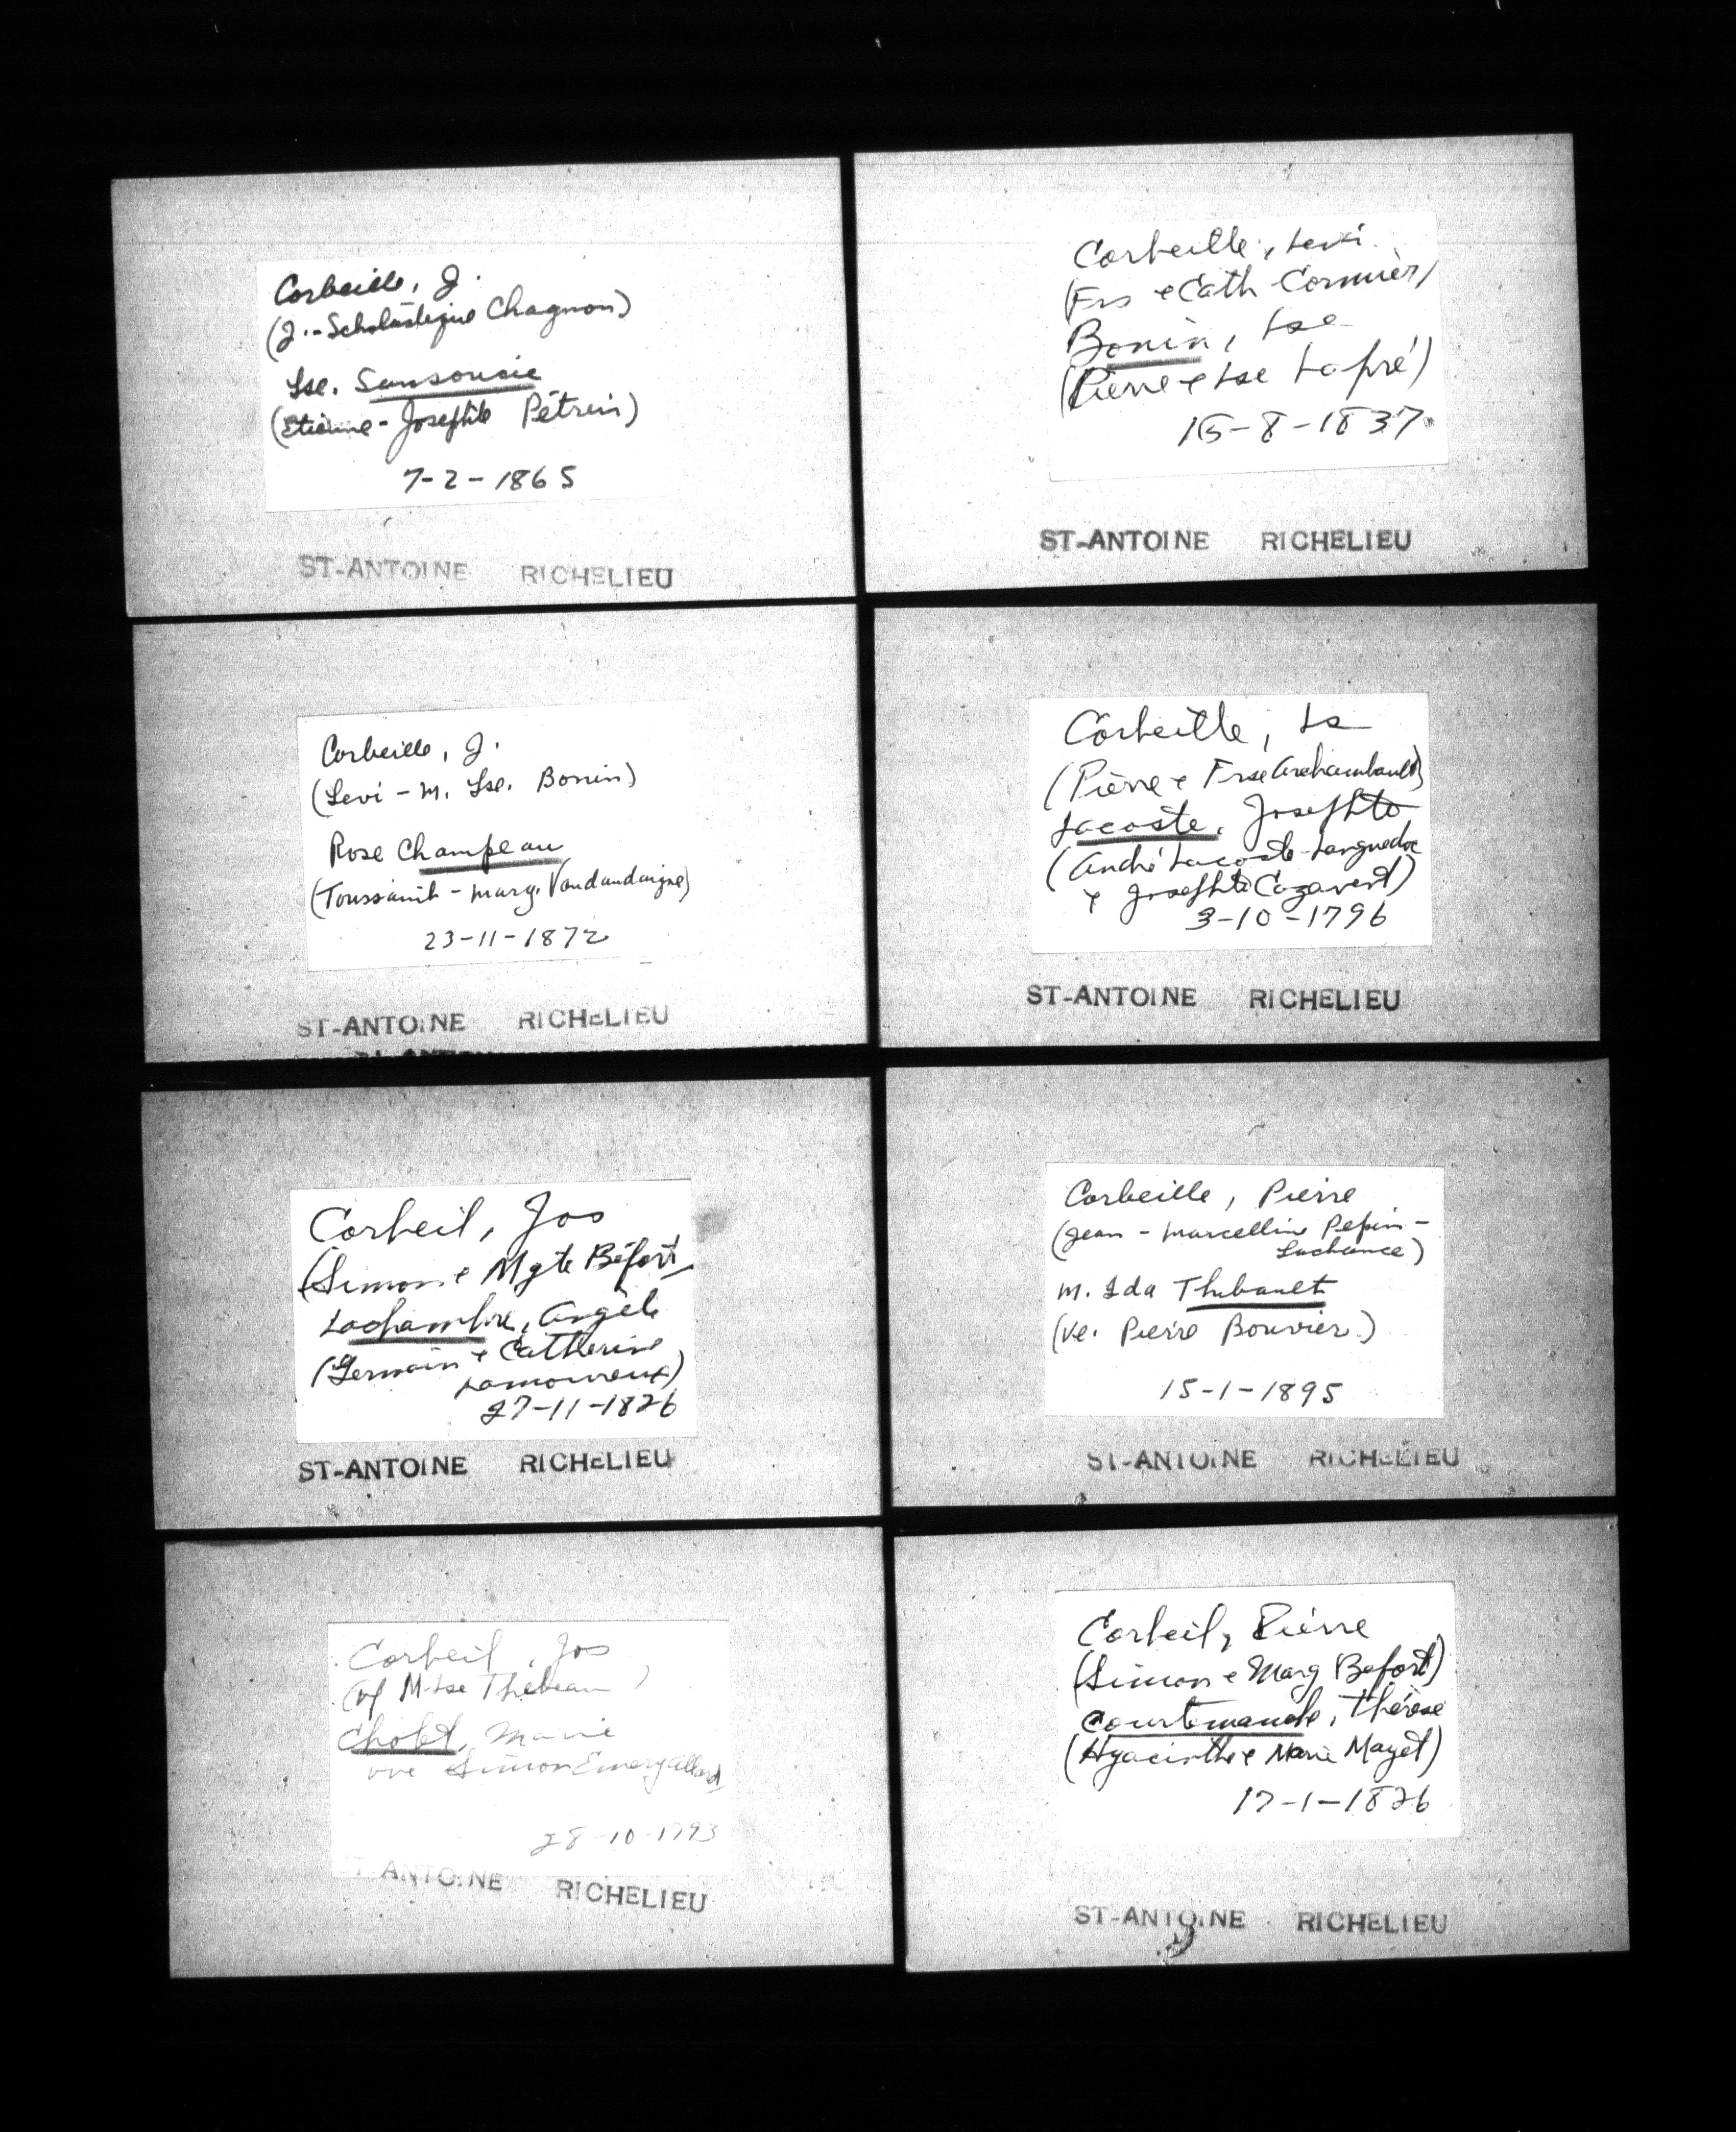 Corbeille, J.
(J.-Scholastique Chagnon)
Lse. Sansoucie
(Etienne - Josephte Pétrin)
7-2-1865
ST-ANTOINE RICHELIEU
Corbeille, J.
(Levi - M. Lse. Bonin)
Rose Champeau
(Toussaint - Marg. Vandandaigne)
23-11-1872
ST-ANTOINE RICHELIEU
Corbeil, Jos
(Simon e Mgte Béfort)
Lachambre, Angèle
(Germain e Catherine
Lamoureux)
27-11-1826
ST-ANTOINE RICHELIEU
Corbeil, Jos
(vf M-Lse Thebeau)
Cholet, Marie
vve Simon Emery Allard
28-10-1793
ST-ANTOINE RICHELIEU
Corbeille, Levi
(Frs e Cath Cormier)
Bonin, Lse
(Pierre e Lse Lapré)
-8-1837
ST-ANTOINE RICHELIEU
Corbeille, Ls
(Pierre e Frse Archambault)
Lacoste, Josephte
(André Lacoste-Languedoc
e Josephte Cazavent)
3-10-1796
ST-ANTOINE RICHELIEU
Corbeille, Pierre
(Jean - Marcelline Pepin-
Lachance)
M. Ida Thibault
(Ve. Pierre Bouvier)
15-1-1895
ST-ANTOINE RICHELIEU
Corbeil, Pierre
(Simon e Marg Befort)
Courtemanche, Thérèse
(Hyacinthe e Marie Mayet)
17-1-1826
ST-ANTOINE RICHELIEU